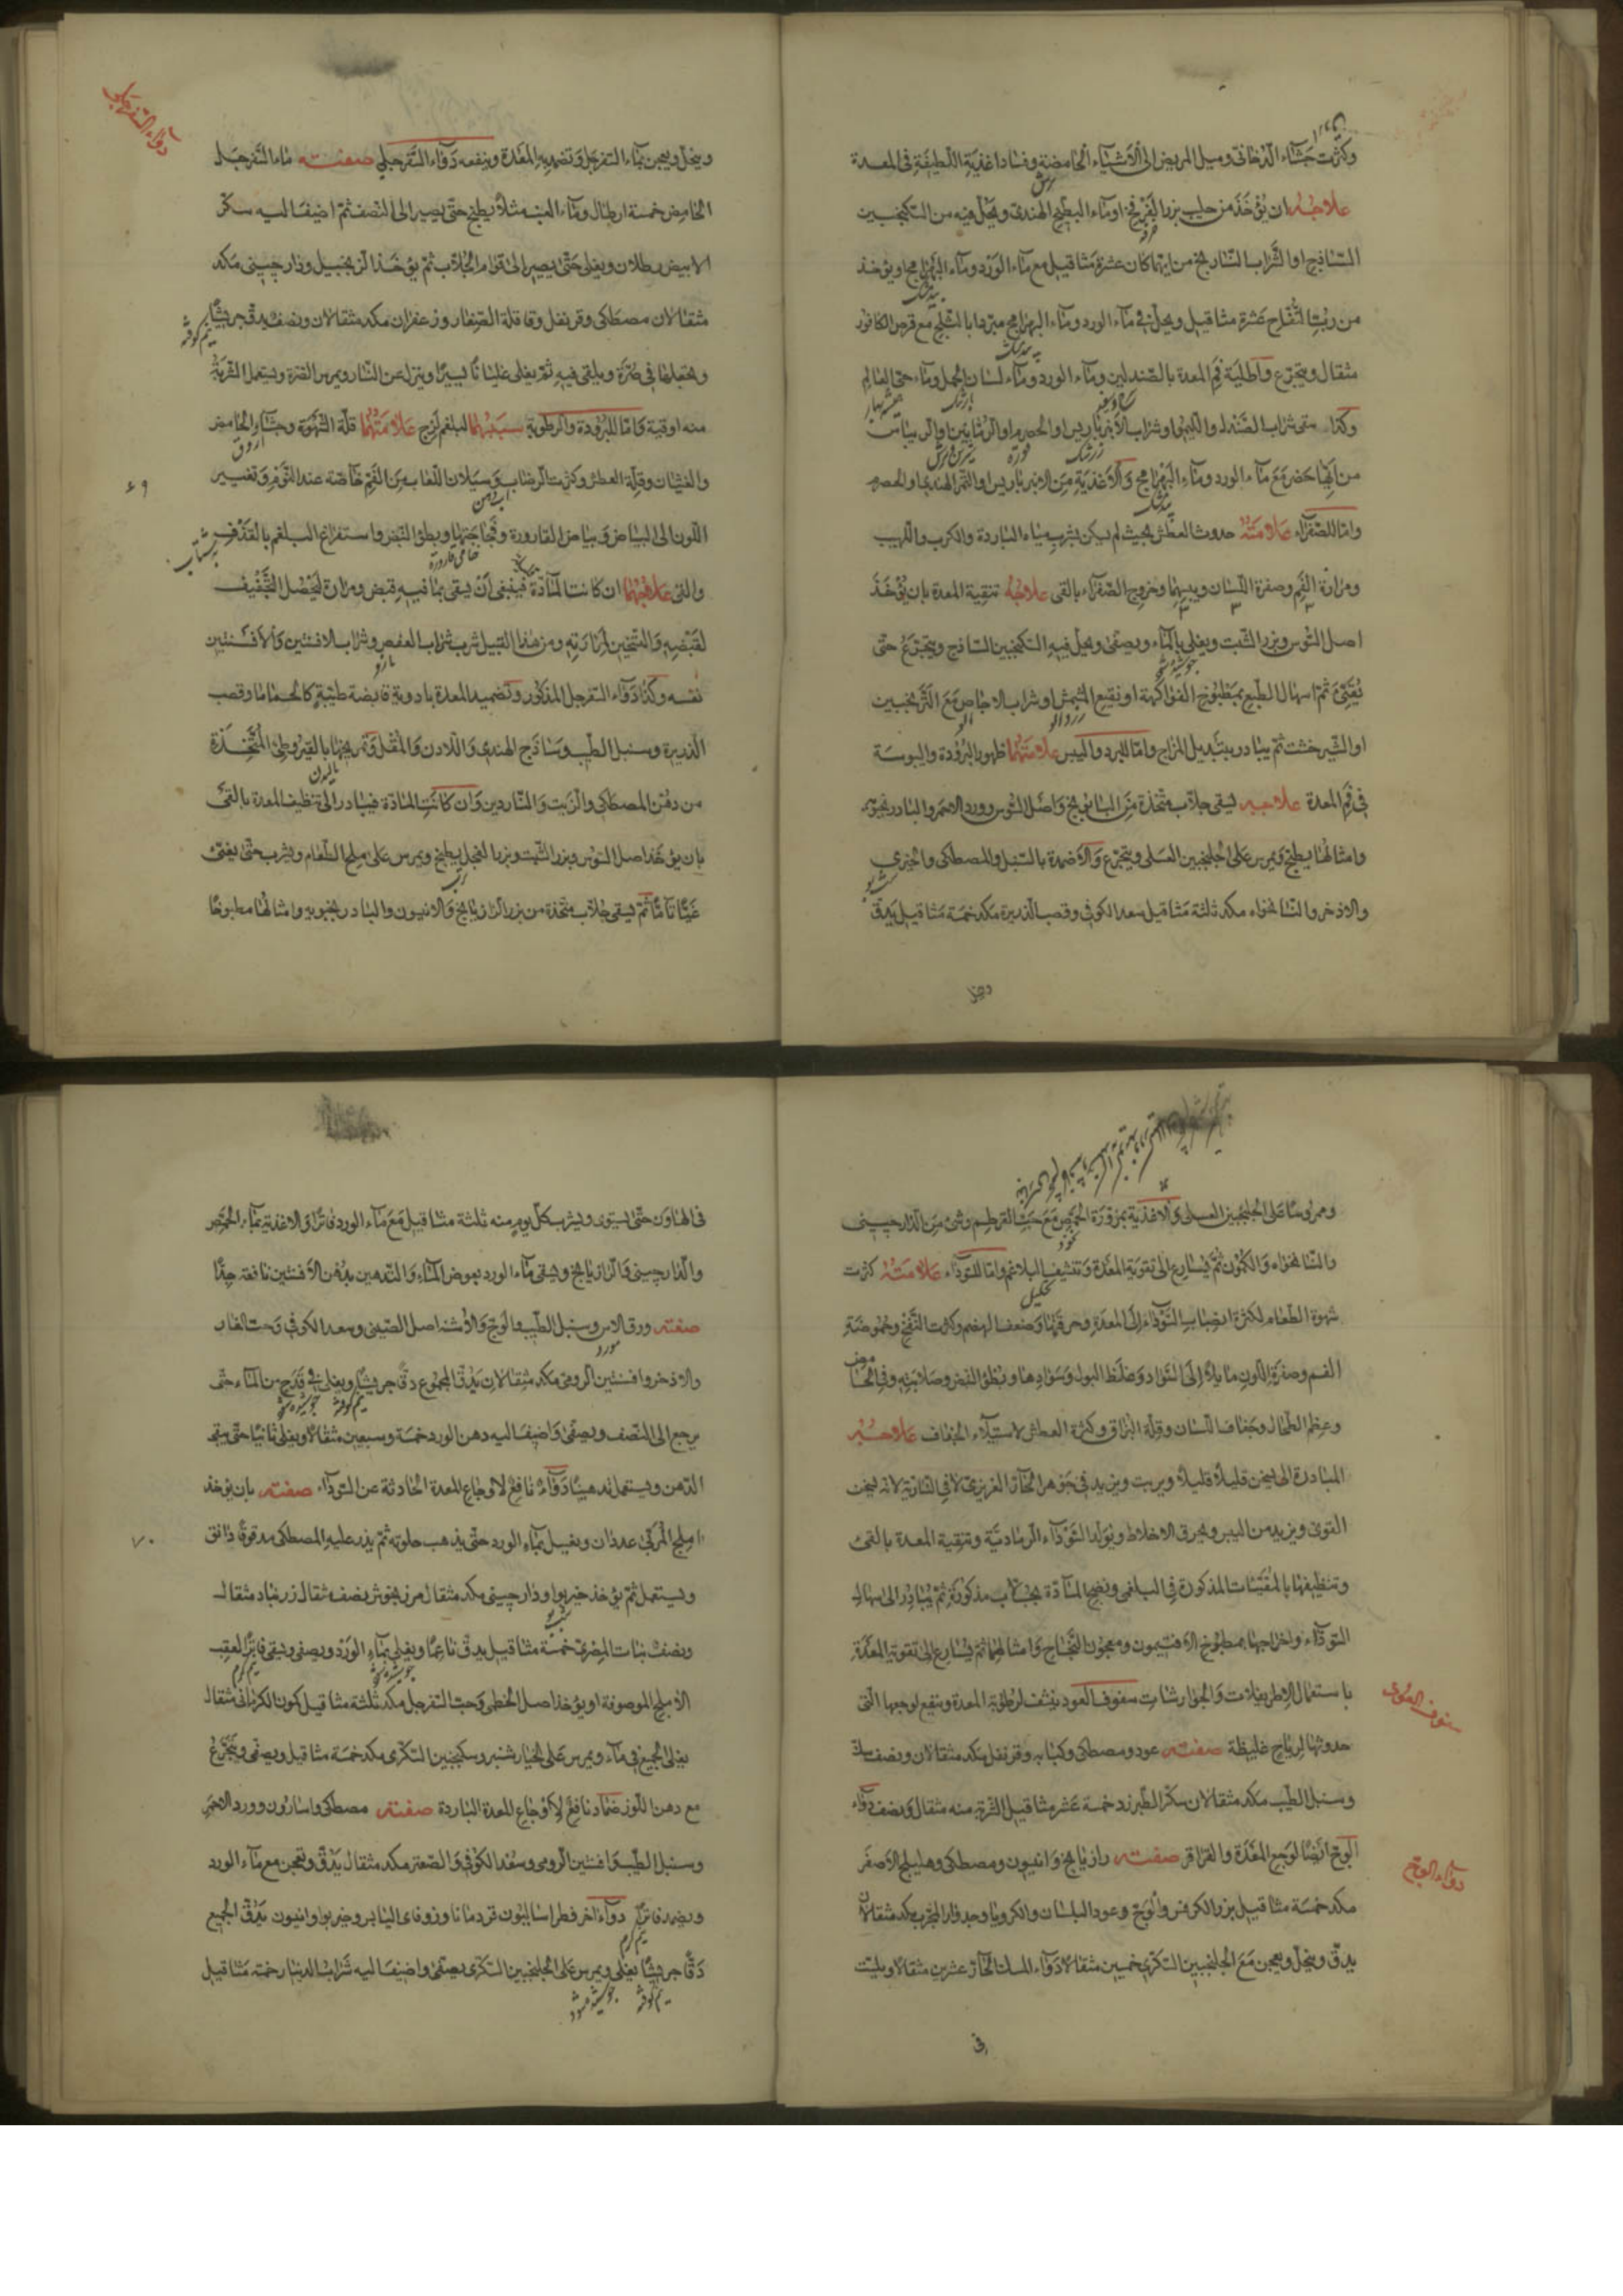 وكثرت جشاء الدخانى وميل المريض الى الاشياء الحامضة وفساد اغذية اللطيفة فى المعدة
علاجه ان يؤخذ من حليب بزر البقرفخ او ماء البطيخ الهندى ويحل فيه من السكنجبين
الساذج او الشراب النارنج من ايهما كان عشرة مثاقيل مع ماء الورد وماء البهرامج او يؤخذ
من رب التفاح عشرة مثاقيل ويحل فى ماء الورد وماء البهرامج مبردا بالثلج مع قرص الكافور
مثقال ويتجرع واطلية فم المعدة بالصندلين وماء الورد وماء لسان الحمل وماء حى العالم
وكذا سقى شراب الصندل والليمو وشراب الانبرباريس او الحصرم او الرمانين والريباس
من ايها حضر مع ماء الورد وماء البهرامج والاغذية من الانبرباريس او التمر الهندى او الحصرم
واما للصفراء علامته حدوث العطش بحيث لم يسكن بشرب مياه الباردة والكرب واللهيب
ومرارة الفم وصفرة اللسان ويبسهما وخروج الصفراء بالقى علاجه تنقية المعدة بان يؤخذ
اصل السوس وبزر الشبت ويغلى بالماء ويصفى ويحل فيه السكنجبين الساذج ويتجرع حتى
يقيئ ثم اسهال الطبع بمطبوخ الفواكهة او نقيع المشمش او شراب الاجاص مع الترنجبين
او الشيرخشت ثم يبادر بتبديل المزاج واما للبرد واليبس علامتهما ظهور البرودة واليبوسة
فى فم المعدة علاجه يسقى جلاب متخذة من البابونج واصل السوس وورد الاحمر والبادرنجبويه
وامثالها يطبخ ويمرس على الجلنجبين العسلى ويتجرع والاضمدة بالسنبل والمصطكى والخيرى
والاذخر والنانخواه مكد ثلثة مثاقيل سعد الكوفى وقصب الذريرة مكد خمسة مثاقيل يدق
دواء السفرجلى
وينخل ويعجن بماء السفرجل وتضمد به المعدة وينفعه دواء السفرجلى صفته ماء السفرجل
الحامض خمسة ارطال وماء العنب مثلا يطبخ حتى يصير الى النصف ثم اضيف اليه سكر
الابيض رطلان ويغلى حتى يصير الى قوام الجلاب ثم يؤخذ الزنجبيل ودارچينى مكد
مثقالان مصطكى وقرنفل وقاقلة الصغار وزعفران مكد مثقالان ونصف يدق جريشا
ويجعلها فى صرة ويلقى فيه ثم يغلى غليانا يسيرا وينزل عن النار ويمرس الصرة ويستعمل الشربة
منه اوقية واما للبرودة والرطوبة سببهما البلغم لزج علامتهما قلة الشهوة وجشاء الحامض
والغثيان وقلة العطش وكثرت الرضاب وسيلان اللعاب من الفم خاصة عند النوم وتغيير
اللون الى البياض وبياض القارورة وفجاجتها وبطؤ النبض واستفراغ البلغم بالقذف
والقى علاجهما ان كانت المادة فينبغى ان يسقى بما فيه قبض ومرارة ليحصل التجفيف
لقبضه والتسخين لمرارته ومن هذا القبيل شرب شراب العفص وشراب الافسنتين والافسنتين
نفسه وكذا دواء السفرجل المذكور وتضميد المعدة بادوية قابضة طيبة كالحماما وقصب
الذريرة وسنبل الطيب وساذج الهندى واللادن والمقل وتمريخها بالقيروطى المتخذة
من دهن المصطكى والزيت والناردين وان كانت المادة فيبادر الى تنظيف المعدة بالقئ
بان يؤخذ اصل السوس وبزر الشبت وبزر الفجل يطبخ ويمرس على ملح الطعام ويشرب حتى يقيئ
قيئا تاما ثم يسقى جلاب متخذة من بزر الرازيانج والانيسون والبادرنجبويه وامثالها مطبوخا
٦٩
وممروسا على الجلنجبين العسلى والاغذية بمزورة الحمص مع حب القرطم وشئ من الدارچينى
والنانخواه والكمون ثم يسارع الى تقوية المعدة وتنشيف البلاغم واما للسوداء علامته كثرت
شهوة الطعام لكثرة انصباب السوداء الى المعدة وحرقتها وضعف الهضم وكثرت النفخ وحموضة
الفم وصفرة اللون مايلا الى السواد وغلظ البول وسوادها وبطؤ النبض وصلابته
وعظم الطحال وجفاف اللسان وقلة البزاق وكثرة العطش لاستيلاء الجفاف علاجه
المبادرة الى يسخن قليلا قليلا ويربت ويزيد فى جوهر الحار الغريزى لا فى النارية لانه يسخن
القوى ويزيد من اليبس ويحرق الاخلاط ويولد السوداء الرمادية وتنقية المعدة بالقئ
وتنظيفها بالمقيئات المذكورة فى البلغمى ونضج المادة بجلاب مذكورة ثم يبادر الى اسهال
السوداء واخراجها بمطبوخ الافتيمون ومعجون النجاح وامثالهما ثم يسارع الى تقوية المعدة
باستعمال الاطريفلات والجوارشات سفوف العود ينشف لرطوبة المعدة وينفع لوجعها التى
حدوثها لرياح غليظة صفته عود ومصطكى وكبابه وقرنفل مكد مثقالان ونصف
وسنبل الطيب مكد مثقالان سكر الطبرزد خمسة عشر مثاقيل الشربة منه مثقال ونصف دواء
الوج ايضا لوجع المعدة والقراقر صفته رازيانج وانيسون ومصطكى وهليلج الاصفر
مكد خمسة مثاقيل بزر الكرفس والوج وعود البلسان والكرويا وجدوار المجرب مكد مثقالان
يدق وينخل ويعجن مع الجلنجبين السكرى خمسين مثقالا دواء المسك الحار عشرين مثقالا ويلت
سفوف العود
دواء الوج
فى
فى الهاون حتى يستوى ويشرب كل يوم منه ثلثة مثاقيل مع ماء الورد فاترا والاغذية بماء الحمص
والدارچينى والرازيانج ويسقى ماء الورد بعوض الماء والتدهين بدهن الافسنتين نافعة جدا
صفته ورق الاس وسنبل الطيب والوج والاشنه اصل الصينى وسعد الكوفى وحب الغار
والاذخر وافسنتين الرومى مكد مثقالان يدق المجموع دقا جريشا ويغلى فى قدح من الماء حتى
يرجع الى النصف ويصفى واضيف اليه دهن الورد خمسة وسبعين مثقالا ويغلى ثانيا حتى يبقى
الدهن ويستعمل تدهينا دواء نافع لاوجاع المعدة الحادثة عن السوداء صفته بان يؤخذ
املج المربى عددان ويغسل بماء الورد حتى يذهب حلوته ثم يذر عليه المصطكى مدقوقا دانق
ويستعمل ثم يؤخذ خيربوا ودارچينى مكد مثقال مرزنجوش نصف مثقال زرنباد مثقال
ونصف نبات المصرى خمسة مثاقيل يدق ناعما ويغلى بماء الورد ويصفى ويسقى فاترا لعقب
الاملج الموصوفة او يؤخذ اصل الخطمى وحب السفرجل مكد ثلثة مثاقيل كمون الكرمانى مثقال
يغلى الجميع فى ماء ويمرس على الخيارشنبر وسكنجبين السكرى مكد خمسة مثاقيل ويصفى ويتجرع
مع دهن اللوز ضماد نافع لاوجاع المعدة الباردة صفته مصطكى واسارون وورد الاحمر
وسنبل الطيب وافسنتين الرومى وسعد الكوفى والصعتر مكد مثقال يدق ويعجن مع ماء الورد
ويضمد فاترا دواء اخر فطراساليون قردمانا وزوفاى اليابس وخيربوا وانيسون يدق الجميع
دقا جريشا يغلى ويمرس على الجلنجبين السكرى يصفى واضيف اليه شراب الدينار خمسة مثاقيل
٧٠